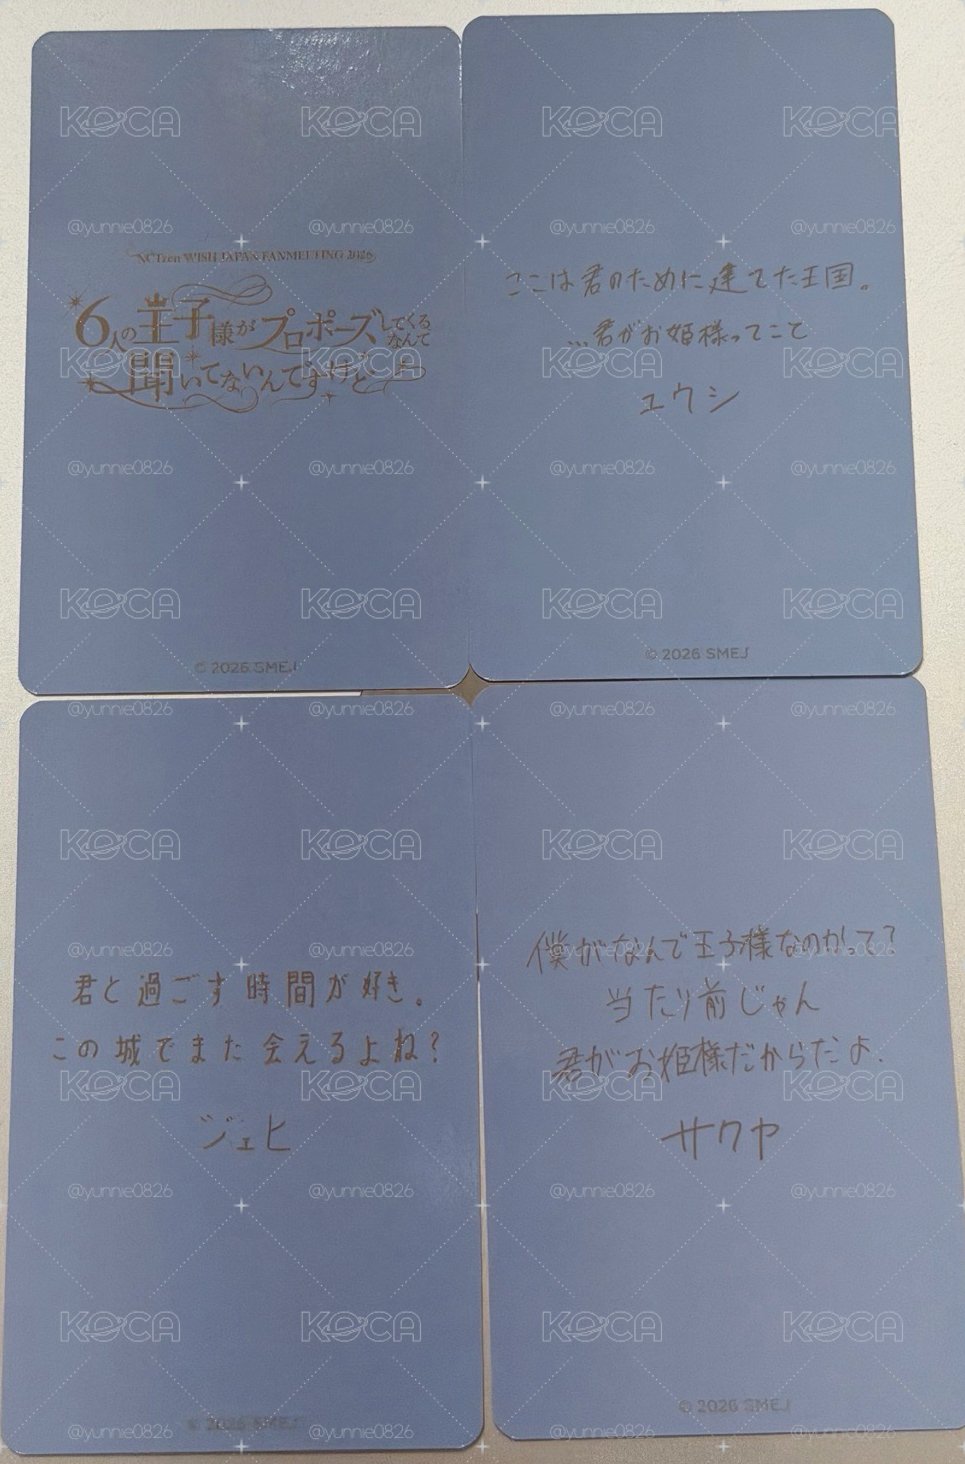 NCTzen WISH JAPAN FANMEETING 2026
6人の王子様がプロポーズしてくるなんて
聞いてないんですけど
© 2026 SMEJ
ここは君のために建てた王国。
...君がお姫様ってこと
ユウシ
© 2026 SMEJ
君と過ごす時間が好き。
この城でまた会えるよね?
ジェヒ
© 2026 SMEJ
僕がなんで王子様なのかって?
当たり前じゃん
君がお姫様だからだよ.
サクヤ
© 2026 SMEJ
KOCA
@yunnie0826